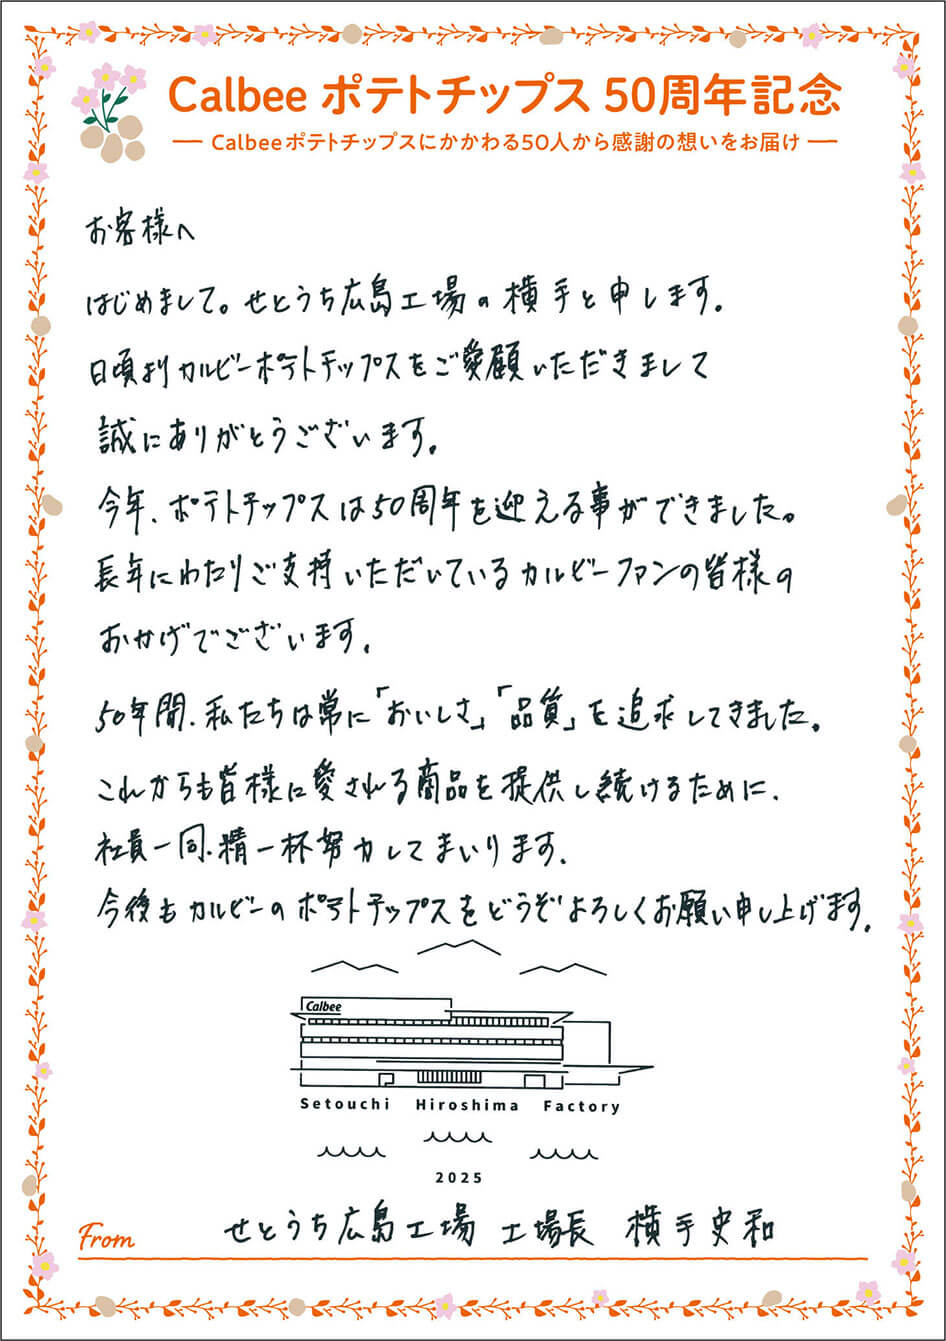 Calbee ポテトチップス 50周年記念
Calbeeポテトチップスにかかわる50人から感謝の想いをお届け
お客様へ
はじめまして。せとうち広島工場の横手と申します。
日頃よりカルビーポテトチップスをご愛顧いただきまして
誠にありがとうございます。
今年、ポテトチップスは50周年を迎える事ができました。
長年にわたりご支持いただいているカルビーファンの皆様の
おかげでございます。
50年間、私たちは常に「おいしさ」「品質」を追求してきました。
これからも皆様に愛される商品を提供し続けるために、
社員一同、精一杯努力してまいります。
今後もカルビーのポテトチップスをどうぞよろしくお願い申し上げます。
Calbee
Setouchi Hiroshima Factory
2025
From せとうち広島工場 工場長 横手史和